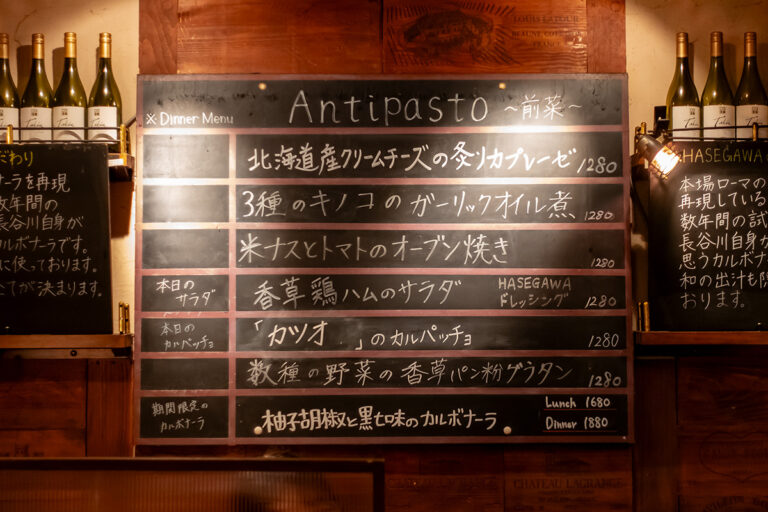 LOUIS LATOUR
BEAUNE COTE-D'OR
FRANCE
※Dinner Menu
Antipasto ～前菜～
北海道産クリームチーズの炙りカプレーゼ 1280
3種のキノコのガーリックオイル煮 1280
米ナスとトマトのオーブン焼き 1280
本日の
サラダ
香草鶏ハムのサラダ
HASEGAWA
ドレッシング 1280
本日の
カルパッチョ
「カツオ 」のカルパッチョ 1280
数種の野菜の香草パン粉グラタン 1280
期間限定の
カルボナーラ
柚子胡椒と黒七味のカルボナーラ
Lunch 1680
Dinner 1880
だわり
ナーラを再現
数年間の
長谷川自身が
カルボナーラです。
に使っております。
てが決まります。
HASEGAWA
本場ローマの
再現している
数年間の試
長谷川自身が
思うカルボナ
和の出汁も隠
おります。
CHATEAU LAGRANGE